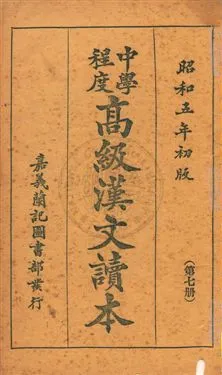 昭和五年初版
(第七册)
中學程度
高級漢文讀本
嘉義蘭記圖書部發行